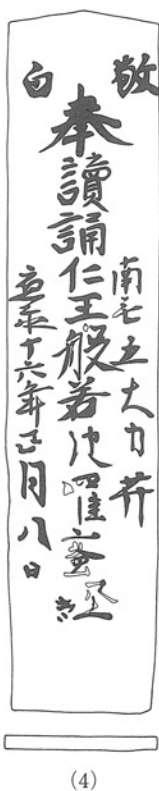 敬白
南无五大力𦬇
奉讀誦仁王般若波羅蜜
十六年正月八日
(4)